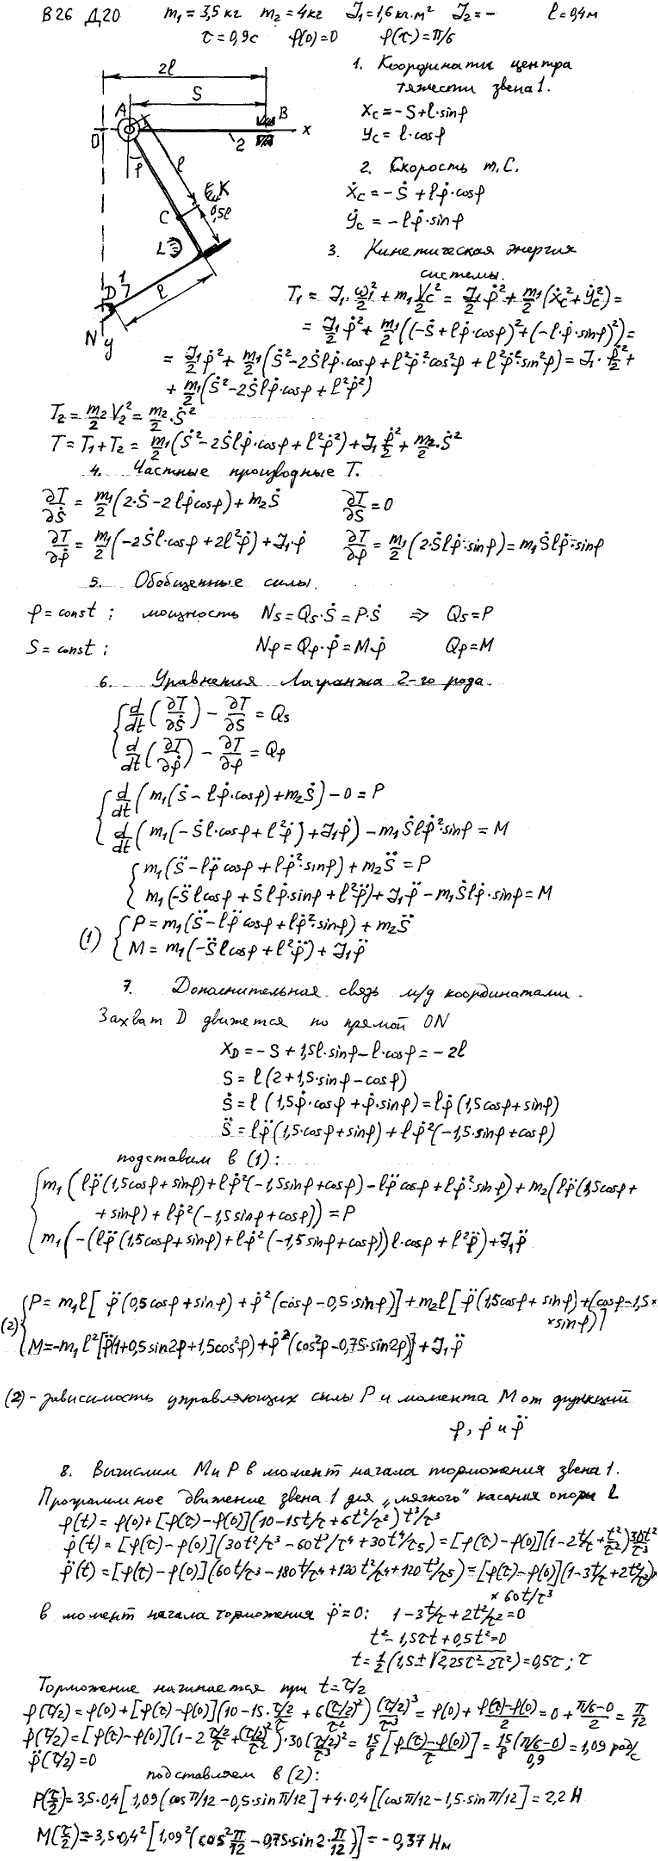 В26 Д20 m₁=3,5 кг m₂=4кг J₁=1,6 кг·м² J₂=– l=0,4м
τ=0,9с φ(0)=0 φ(τ)=π/6
2l
S
A
B
0
2
x
φ
l
K
C
0,5l
L
1
D
l
N y
1. Координаты центра
тяжести звена 1.
Xc=–S+l·sinφ
Yc= l·cosφ
2. Скорость т.С.
Ẋc=–Ṡ+lφ̇·cosφ
Ẏc = –lφ̇·sinφ
3. Кинетическая энергия
системы.
T₁ = J₁·ω₁²/2 + m₁Vc²/2 = J₁/2·φ̇² + m₁/2(Ẋc²+Ẏc²)=
= J₁/2·φ̇² + m₁/2((–Ṡ+lφ̇·cosφ)²+(–l·φ̇·sinφ)²)=
= J₁/2 φ̇² + m₁/2(Ṡ²–2Ṡlφ̇·cosφ+l²φ̇²cos²φ + l²φ̇²·sin²φ)= J₁·φ̇²/2 +
+ m₁/2(Ṡ²–2Ṡlφ̇·cosφ + l²φ̇²)
T₂= m₂/2 V₂² = m₂/2·Ṡ²
T=T₁+T₂ = m₁/2(Ṡ²–2Ṡlφ̇·cosφ+l²φ̇²)+J₁ φ̇²/2 + m₂/2·Ṡ²
4. Частные производные T.
∂T/∂Ṡ = m₁/2(2·Ṡ–2lφ̇cosφ)+m₂Ṡ ∂T/∂S=0
∂T/∂φ̇ = m₁/2(–2Ṡl·cosφ+2l²φ̇)+J₁·φ̇ ∂T/∂φ = m₁/2(2·Ṡlφ̇·sinφ)=m₁Ṡlφ̇·sinφ
5. Обобщенные силы.
φ=const ; мощность Ns=Qs·Ṡ=P·Ṡ ⇒ Qs=P
S=const ; Nφ=Qφ·φ̇=M·φ̇ Qφ=M
6. Уравнения Лагранжа 2-го рода.
d/dt(∂T/∂Ṡ) – ∂T/∂S = Qs
d/dt(∂T/∂φ̇) – ∂T/∂φ = Qφ
d/dt(m₁(Ṡ–lφ̇·cosφ)+m₂Ṡ)–0=P
d/dt(m₁(–Ṡl·cosφ+l²φ̇)+J₁φ̇)–m₁Ṡlφ̇·sinφ=M
m₁(S̈–lφ̈cosφ+lφ̇²·sinφ)+m₂S̈=P
m₁(–S̈lcosφ+Ṡlφ̇·sinφ+l²φ̈)+J₁φ̈–m₁Ṡlφ̇·sinφ=M
(1) P=m₁(S̈–lφ̈cosφ+lφ̇²·sinφ)+m₂S̈
M=m₁(–S̈lcosφ+l²φ̈)+J₁φ̈
7. Дополнительная связь м/д координатами.
Захват D движется по прямой ON
X_D=–S+1,5l·sinφ–l·cosφ=–2l
S=l(2+1,5·sinφ–cosφ)
Ṡ=l(1,5φ̇·cosφ+φ̇·sinφ)=lφ̇(1,5cosφ+sinφ)
S̈=lφ̈(1,5·cosφ+sinφ)+lφ̇²(–1,5·sinφ+cosφ)
подставим в (1):
m₁(lφ̈(1,5cosφ+sinφ)+lφ̇²(–1,5sinφ+cosφ)–lφ̈cosφ+lφ̇²·sinφ)+m₂(lφ̈(1,5cosφ+
+sinφ)+lφ̇²(–1,5sinφ+cosφ))=P
m₁(–(lφ̈(1,5cosφ+sinφ)+lφ̇²(–1,5sinφ+cosφ))l·cosφ+l²φ̈)+J₁φ̈
(2) P=m₁l[φ̈(0,5cosφ+sinφ)+φ̇²(cosφ–0,5·sinφ)]+m₂l[φ̈(1,5cosφ+sinφ)+(cosφ–1,5×
×sinφ)]
M=–m₁l²[φ̈(1+0,5sin2φ+1,5cos²φ)+φ̇²(cos²φ–0,75·sin2φ)]+J₁φ̈
(2) – зависимость управляющих силы P и момента M от функций
φ, φ̇ и φ̈
8. Вычислим M и P в момент начала торможения звена 1.
Программное движение звена 1 для „мягкого" касания опоры L
φ(t)=φ(0)+[φ(τ)–φ(0)](10–15t/τ+6t²/τ²)t³/τ³
φ̇(t)=[φ(τ)–φ(0)](30t²/τ³–60t³/τ⁴+30t⁴/τ⁵)=[φ(τ)–φ(0)](1–2t/τ+t²/τ²)30t²/τ³
φ̈(t)=[φ(τ)–φ(0)](60t/τ³–180t²/τ⁴+120t²/τ⁴+120t³/τ⁵)=[φ(τ)–φ(0)](1–3t/τ+2t²/τ²)×
×60t/τ³
в момент начала торможения φ̈=0: 1–3t/τ+2t²/τ²=0
t²–1,5τt+0,5τ²=0
t=1/2(1,5±√(2,25τ²–2τ²))=0,5τ; τ
Торможение начинается при t=τ/2
φ(τ/2)=φ(0)+[φ(τ)–φ(0)](10–15·(τ/2)/τ+6(τ/2)²/τ²)(τ/2)³/τ³=φ(0)+(φ(τ)–φ(0))/2=0+(π/6–0)/2=π/12
φ̇(τ/2)=[φ(τ)–φ(0)](1–2(τ/2)/τ+(τ/2)²/τ²)·30(τ/2)²/τ³=15/8[(φ(τ)–φ(0))/τ]=15/8((π/6–0)/0,9)=1,09 рад/с
φ̈(τ/2)=0
подставляем в (2):
P(τ/2)=3,5·0,4[1,09(cosπ/12–0,5·sinπ/12]+4·0,4[(cosπ/12–1,5·sinπ/12]=2,2 Н
M(τ/2)=–3,5·0,4²[1,09²(cos²π/12–0,75·sin2·π/12)]=–0,37 Нм